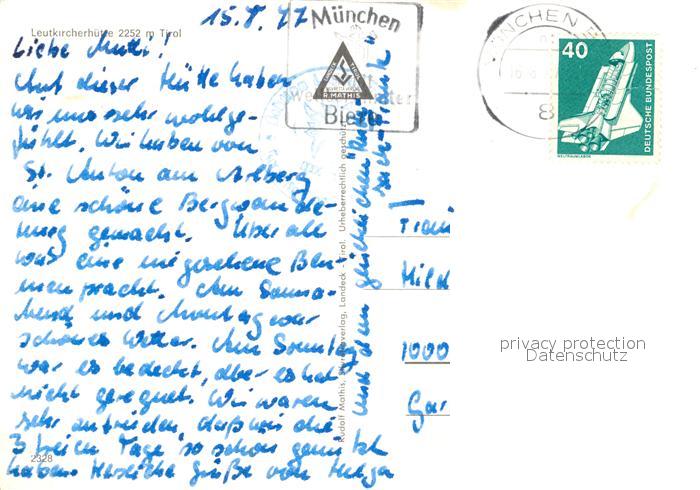 15.8.77
Leutkircherhütte 2252 m Tirol
Liebe Mutti!
Auf dieser Hütte haben
wir uns sehr wohlge-
fühlt. Wir haben von
St. Anton am Arlberg
eine schöne Bergwande-
rung gemacht. Überall
war eine nie gesehene Blu-
menpracht. Am Sonna-
bend und Montag war
schönes Wetter. Am Sonntag
war es bedeckt, aber es hat
nicht geregnet. Wir waren
sehr zufrieden, daß wir die
3 freien Tage so schön genutzt
haben. Herzliche Grüße von Helga
und dem gleichen
2328
Rudolf Mathis, Silvrettaverlag, Landeck - Tirol. Urheberrechtlich geschützt
München
R. MATHIS
Biere
MÜNCHEN
8
40
DEUTSCHE BUNDESPOST
WELTRAUMLABOR
Frau
Hild
1000
Gar
privacy protection
Datenschutz